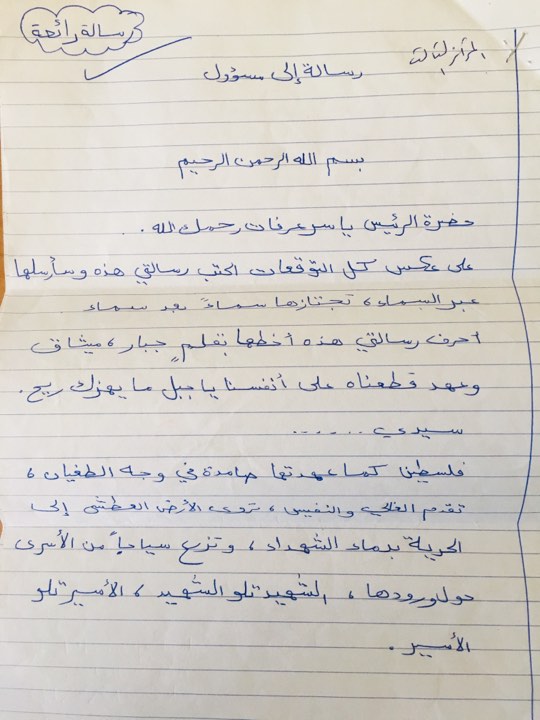 رسالة رائعة
المركز الثالث
رسالة إلى مسؤول
بسم الله الرحمن الرحيم
حضرة الرئيس ياسر عرفات رحمك الله .
على عكس كل التوقعات اكتب رسالتي هذه وسأرسلها
عبر السماء ، تجتازها سماءً بعد سماء
أحرف رسالتي هذه أخطها بقلمٍ جبار ، ميثاق
وعهد قطعناه على أنفسنا يا جبل ما يهزك ريح .
سيدي .......
فلسطين كما عهدتها صامدة في وجه الطغيان ،
تقدم الغالي والنفيس ، تروى الأرض العطشى إلى
الحرية بدماء الشهداء ، وتزرع سياجاً من الأسرى
حول ورودها ، الشهيد تلو الشهيد ، الأسير تلو
الأسير .